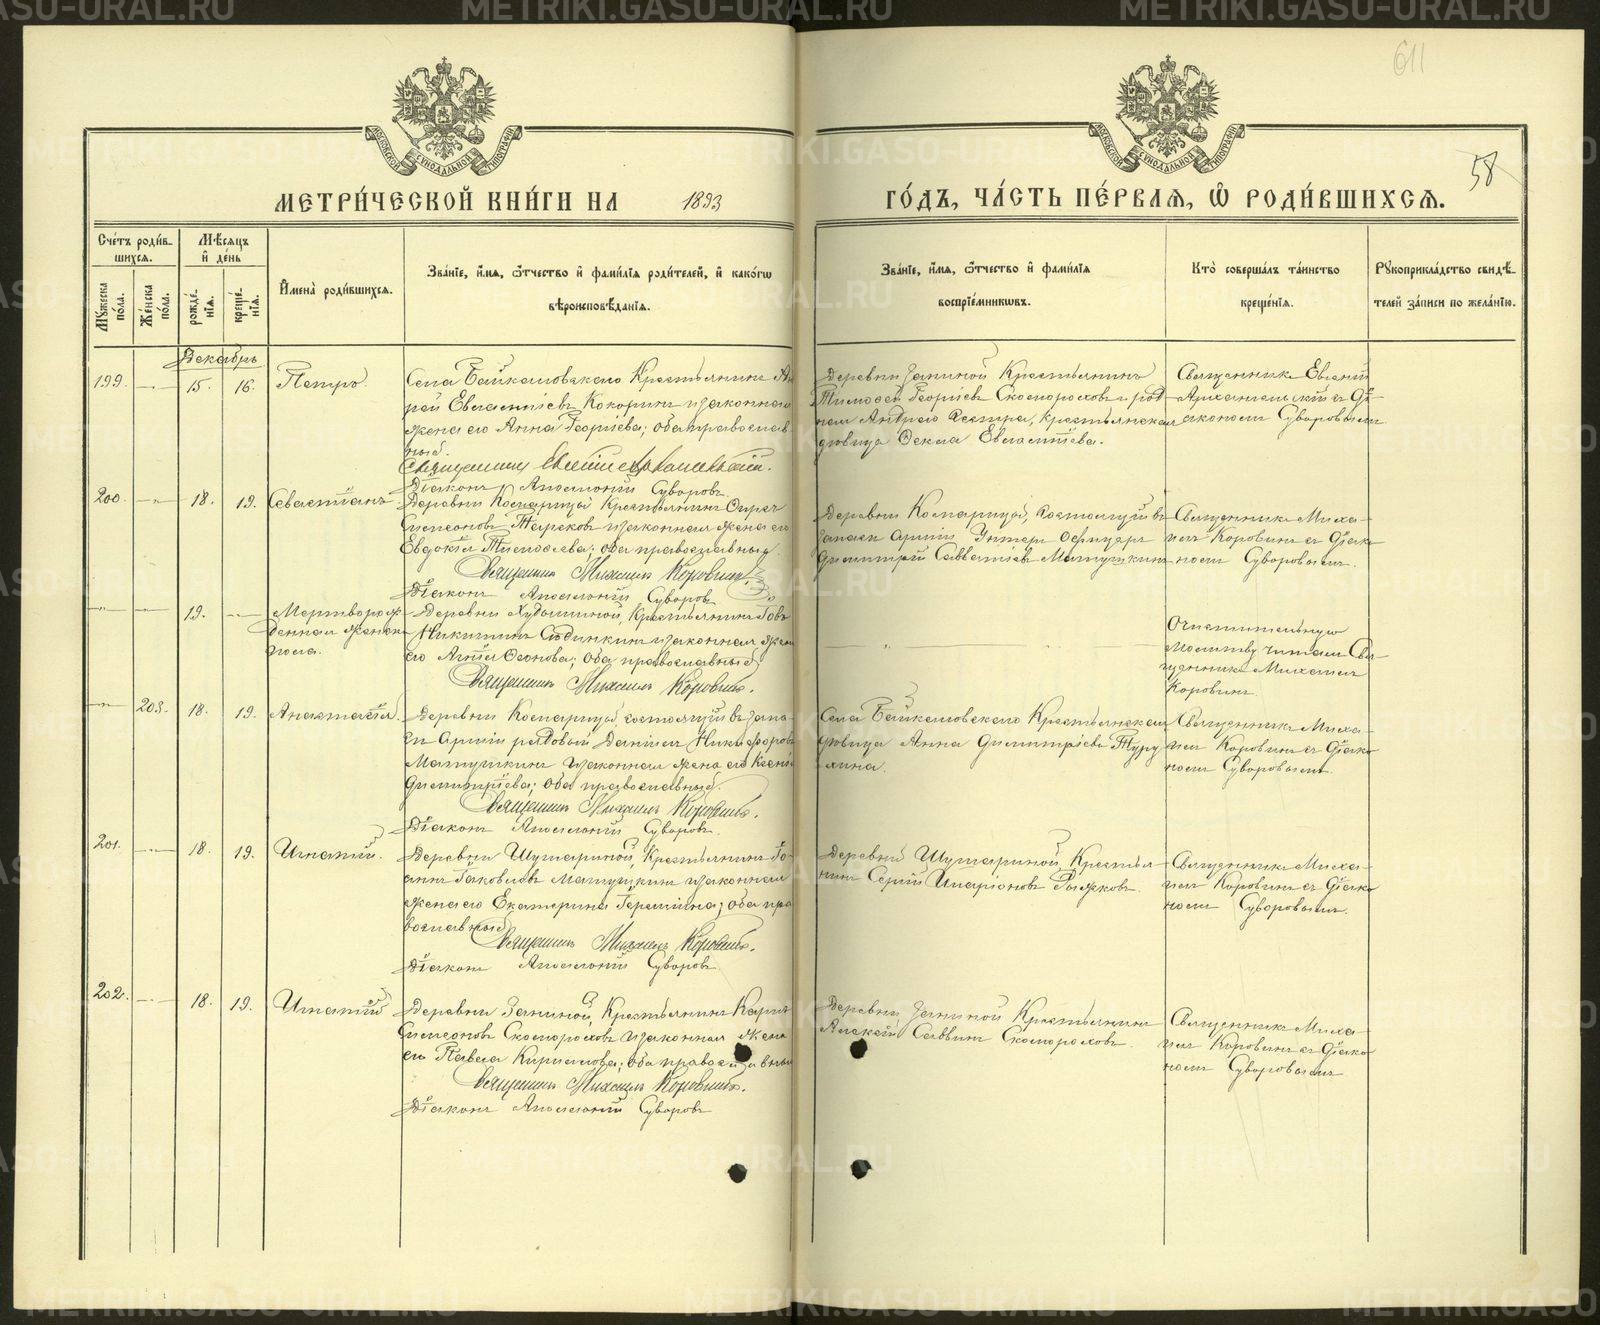 METRIKI.GASO-URAL.RU
611
58
МОСКОВСКОЙ СѴНОДАЛЬНОЙ ТИПОГРАФІИ
МОСКОВСКОЙ СѴНОДАЛЬНОЙ ТИПОГРАФІИ
МЕТРИ́ЧЕСКОЙ КНИ́ГИ НА 1893
ГО́ДЪ, ЧА́СТЬ ПЕ́РВАЯ, Ѡ҆ РОДИ́ВШИХСЯ.
Сче́тъ роди́в-
шихся.
Мѣ́сяцъ
и҆ де́нь
Мꙋ́жеска
по́ла.
Же́нска
по́ла.
рожде́-
нїя.
креще́-
нїя.
И҆мена̀ роди́вшихся.
Зва́нїе, и҆́мя, ѻ҆́тчество и҆ фами́лїя роди́телей, и҆ како́гѡ
вѣроисповѣ́данїя.
Зва́нїе, и҆́мя, ѻ҆́тчество и҆ фами́лїя
воспрїе́мникѡвъ.
Кто̀ соверша́лъ та́инство
креще́нїя.
Рꙋкоприкла́дство свидѣ́-
телей за́писи по жела́нїю.
Декабрь
199. 15. 16. Петръ.
Села Байкаловскаго Крестьянинъ Ан-
рей Евгеніевъ Кокоринъ и законная
жена его Анна Георгіева; оба православ-
ные.
Священникъ
Діаконъ Аполлоній Суворовъ
Деревни Заниной Крестьянинъ
Тимофей Георгіевъ Скоморохов и род-
ная Андрея сестра, крестьянская
дѣвица Фекла Евгеніева.
Священникъ Евгеній
съ Ді-
акономъ Суворовымъ
200. 18. 19. Севастіанъ
Деревни Комарицы Крестьянинъ
Симеоновъ и законная жена его
Евдокія Тимофеева; оба православные
Священникъ Михаилъ Коровинъ.
Діаконъ Аполлоній Суворовъ
Деревни Комарицы, состоящій въ
запасѣ Арміи Унтеръ Офицеръ
Димитрій Савватіевъ Матушкинъ
Священникъ Миха-
илъ Коровинъ съ Діако-
номъ Суворовымъ.
19. Мертворож-
денная женск.
пола.
Деревни Крестьянинъ
Никитинъ и законная жена
его Агнія; оба православные
Священникъ Михаилъ Коровинъ.
Очистительную
молитву читалъ Свя-
щенникъ Михаилъ
Коровинъ
203. 18. 19. Анастасія.
Деревни Комарицы, состоящій въ запа-
сѣ Арміи рядовый Даніилъ Никифоровъ
Матушкинъ и законная жена его Ксенія
Димитріева; оба православные.
Священникъ Михаилъ Коровинъ.
Діаконъ Аполлоній Суворовъ.
Села Байкаловскаго Крестьянская
дѣвица Анна Димитріева Туру-
хина.
Священникъ Миха-
илъ Коровинъ съ Діако-
номъ Суворовымъ.
201. 18. 19. Игнатій.
Деревни Шумариной, Крестьянинъ Іо-
аннъ Іаковлевъ Матушкинъ и законная
жена его Екатерина; оба пра-
вославные
Священникъ Михаилъ Коровинъ.
Діаконъ Аполлоній Суворовъ.
Деревни Шумариной, Крестья-
нинъ Сергій Иларіоновъ Рыжковъ.
Священникъ Миха-
илъ Коровинъ съ Діако-
номъ Суворовымъ.
202. 18. 19. Игнатій
Деревни Заниной, Крестьянинъ
Симеоновъ Скомороховъ и законная жена
его Павла Кириллова; оба православные
Священникъ Михаилъ Коровинъ.
Діаконъ Аполлоній Суворовъ
Деревни Заниной Крестьянинъ
Алексѣй Саввинъ Скомороховъ.
Священникъ Миха-
илъ Коровинъ съ Діако-
номъ Суворовымъ